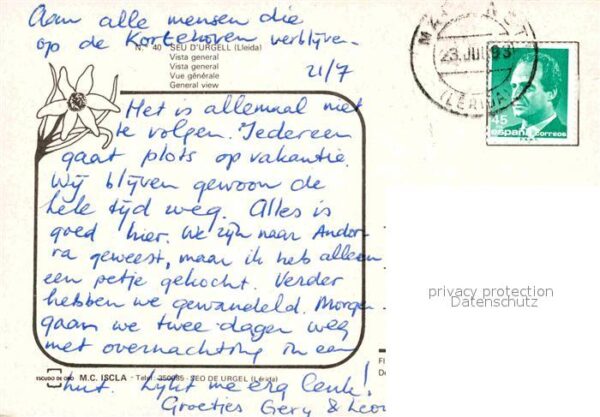 Aan alle mensen die
op de Kortehoven verblijven.
N.° 40 SEU D'URGELL (Lleida)
Vista general
Vista general
Vue générale
General view
21/7
23 JUL 93
(LERIDA)
45
españa correos
Het is allemaal niet
te volgen. Iedereen
gaat plots op vakantie.
Wij blijven gewoon de
hele tijd weg. Alles is
goed hier. We zijn naar Andor-
ra geweest, maar ik heb alleen
een petje gekocht. Verder
hebben we gewandeld. Morgen
gaan we twee dagen weg
met overnachting in een
hut. Lijkt me erg leuk!
Groetjes Gery & Leon
privacy protection
Datenschutz
ESCUDO DE ORO M.C. ISCLA - Telef. 350085 - SEO DE URGEL (Lérida)